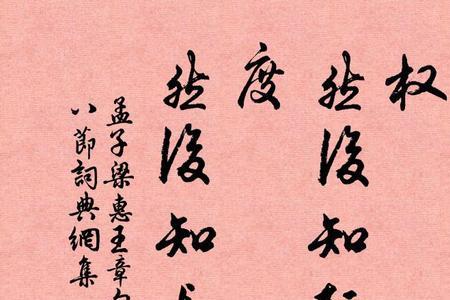 权
然後知
度
然後知
孟子梁惠王章
八節詞典網集